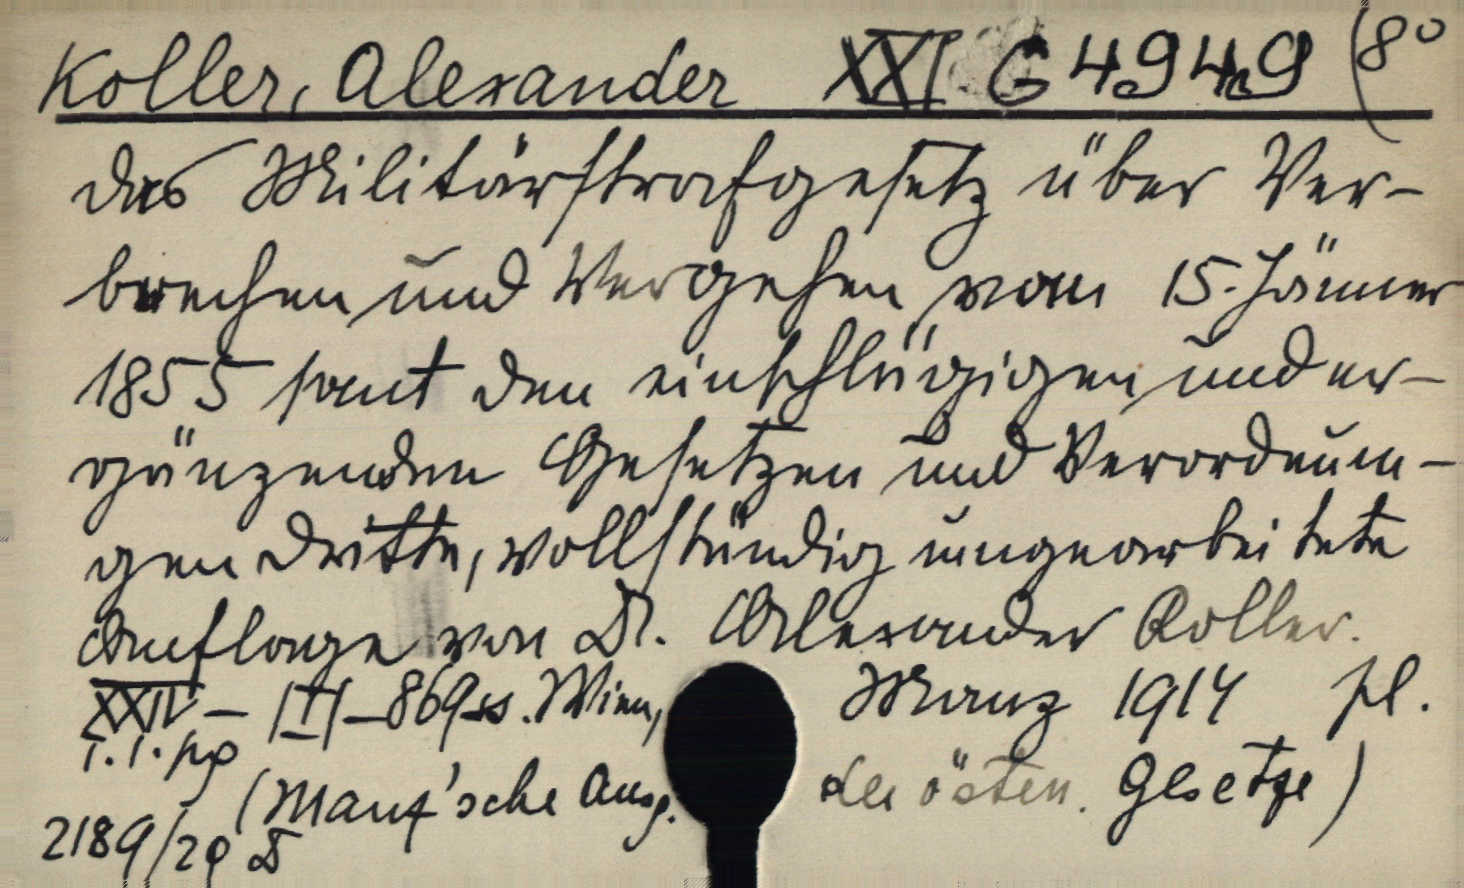 Koller, Alexander XXI. G 4949 (8°
das Militärstrafgesetz über Ver-
brechen und Vergehen vom 15. Jänner
1855 samt den einschlägigen und er-
gänzenden Gesetzen und Verordnun-
gen dritte, vollständig umgearbeitete
Auflage von Dr. Alexander Koller.
XXIV – |1| – 869 ss. Wien, Manz 1914 pl.
(Manz'sche Ausg. der österr. Gesetze)
2189/29 D